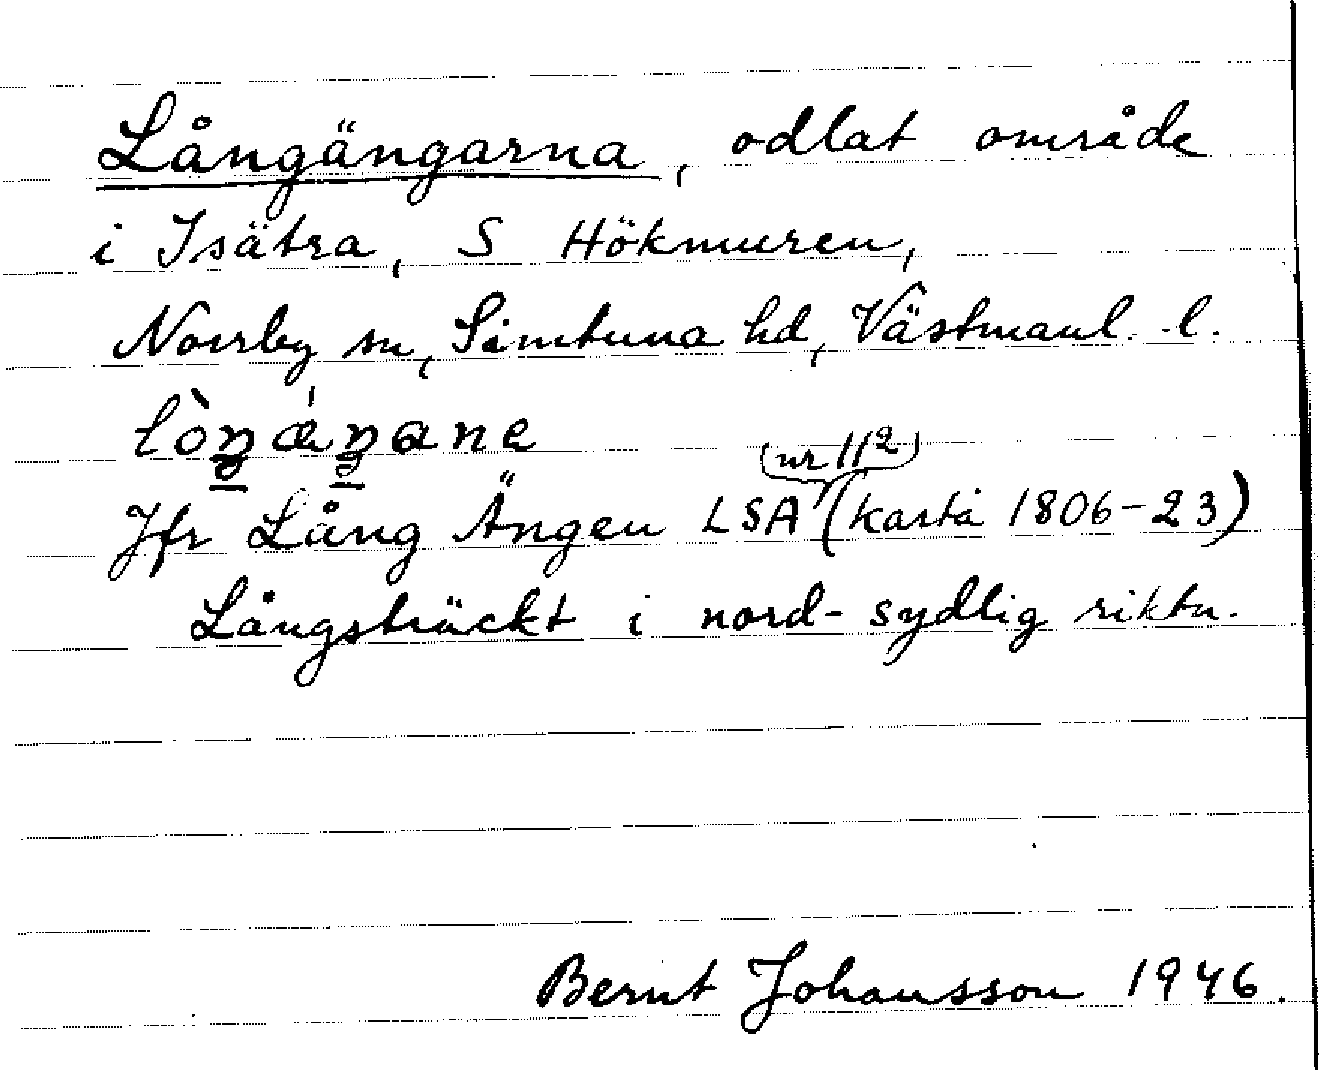 Långängarna, odlat område
i Isätra, S Hökmuren,
Norrby sn, Simtuna hd, Västmanl. l.
lòŋǽŋane
(nr 112)
Jfr Lång Ängen LSA (karta 1806-23)
Långsträckt i nord-sydlig riktn.
Bernt Johansson 1946.